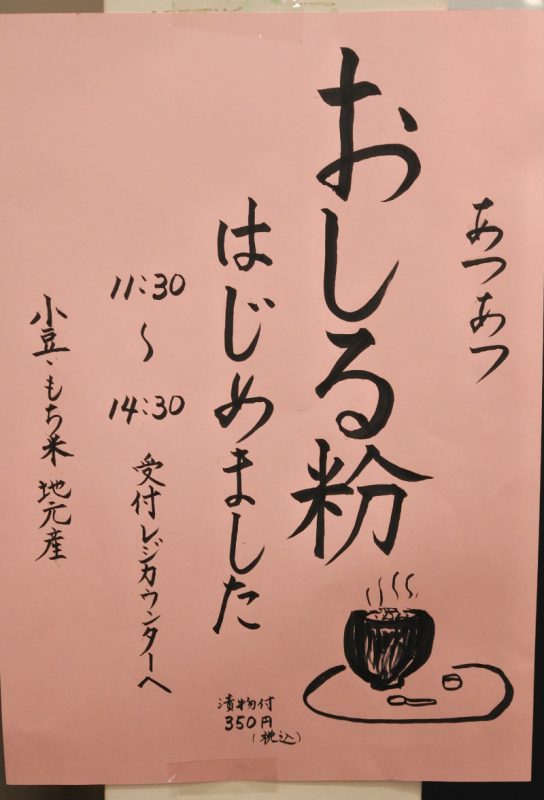 あつあつ
おしる粉
はじめました
11:30
〜
14:30
受付レジカウンターへ
小豆・もち米 地元産
漬物付
350円
(税込)